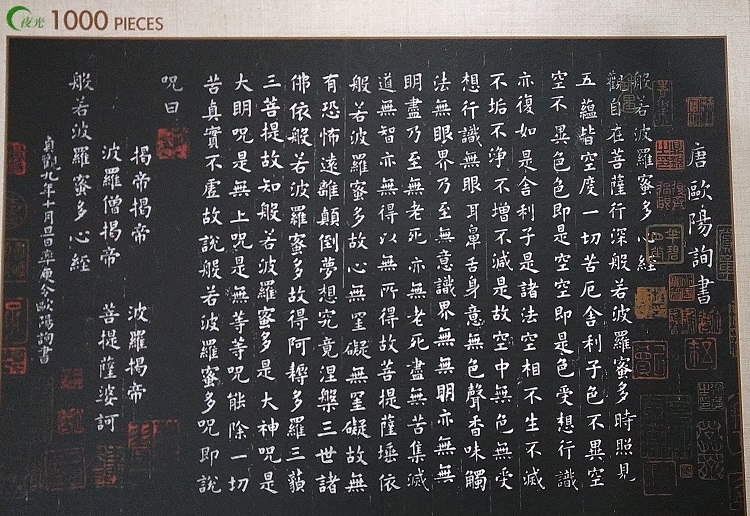 夜光 1000 PIECES
唐歐陽詢書
般若波羅蜜多心經
觀自在菩薩行深般若波羅蜜多時照見
五蘊皆空度一切苦厄舍利子色不異空
空不異色色即是空空即是色受想行識
亦復如是舍利子是諸法空相不生不滅
不垢不淨不增不減是故空中無色無受
想行識無眼耳鼻舌身意無色聲香味觸
法無眼界乃至無意識界無無明亦無無
明盡乃至無老死亦無老死盡無苦集滅
道無智亦無得以無所得故菩提薩埵依
般若波羅蜜多故心無罣礙無罣礙故無
有恐怖遠離顛倒夢想究竟涅槃三世諸
佛依般若波羅蜜多故得阿耨多羅三藐
三菩提故知般若波羅蜜多是大神呪是
大明呪是無上呪是無等等呪能除一切
苦真實不虛故說般若波羅蜜多呪即說
呪曰
揭帝揭帝 波羅揭帝
波羅僧揭帝 菩提薩婆訶
般若波羅蜜多心經
貞觀九年十月旦日率更令歐陽詢書